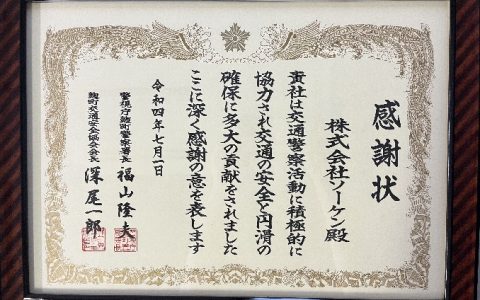 感謝状
株式会社ソーケン殿
貴社は交通警察活動に積極的に
協力され交通の安全と円滑の
確保に多大の貢献をされました
ここに深く感謝の意を表します
令和四年七月一日
警視庁麹町警察署長 福山隆夫
麹町交通安全協会会長 深尾一郎